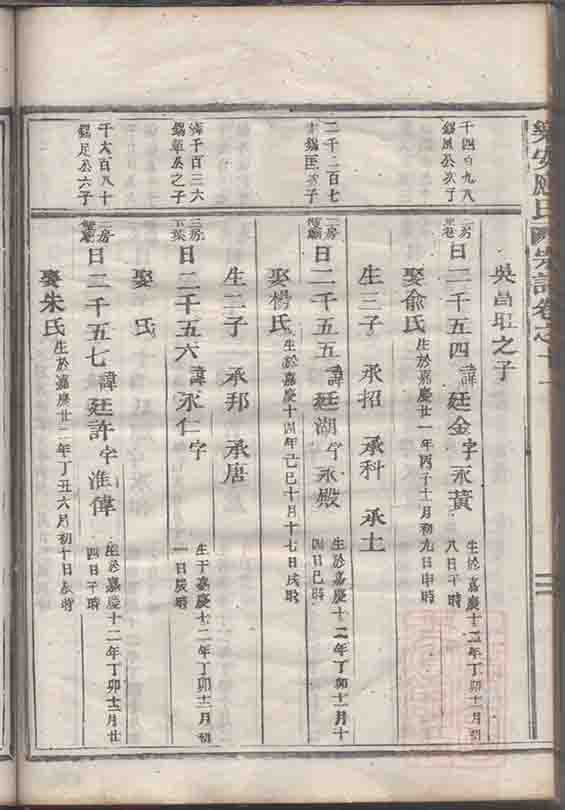 樂安應氏宗譜卷之十一
千四百九八
二房日二千五四諱廷金字永黃生於嘉慶十二年丁卯十一月初八日午時
娶俞氏生於嘉慶廿一年丙子十一月初九日申時
生三子 承招 承科 承土
二千二百七
日二千五五諱廷湖字永殿生於嘉慶十二年丁卯十一月十四日巳時
娶楊氏生於嘉慶十四年己巳十月十七日戌時
生二子 承邦 承唐
千百三六
三房日二千五六諱永仁字
生于嘉慶十二年丁卯十一月初一日辰時
娶 氏
千六百八十
錫足公六子
二房日二千五七諱廷許字淮偉生於嘉慶十二年丁卯十二月廿四日午時
娶朱氏生於嘉慶廿二年丁丑六月初十日辰時